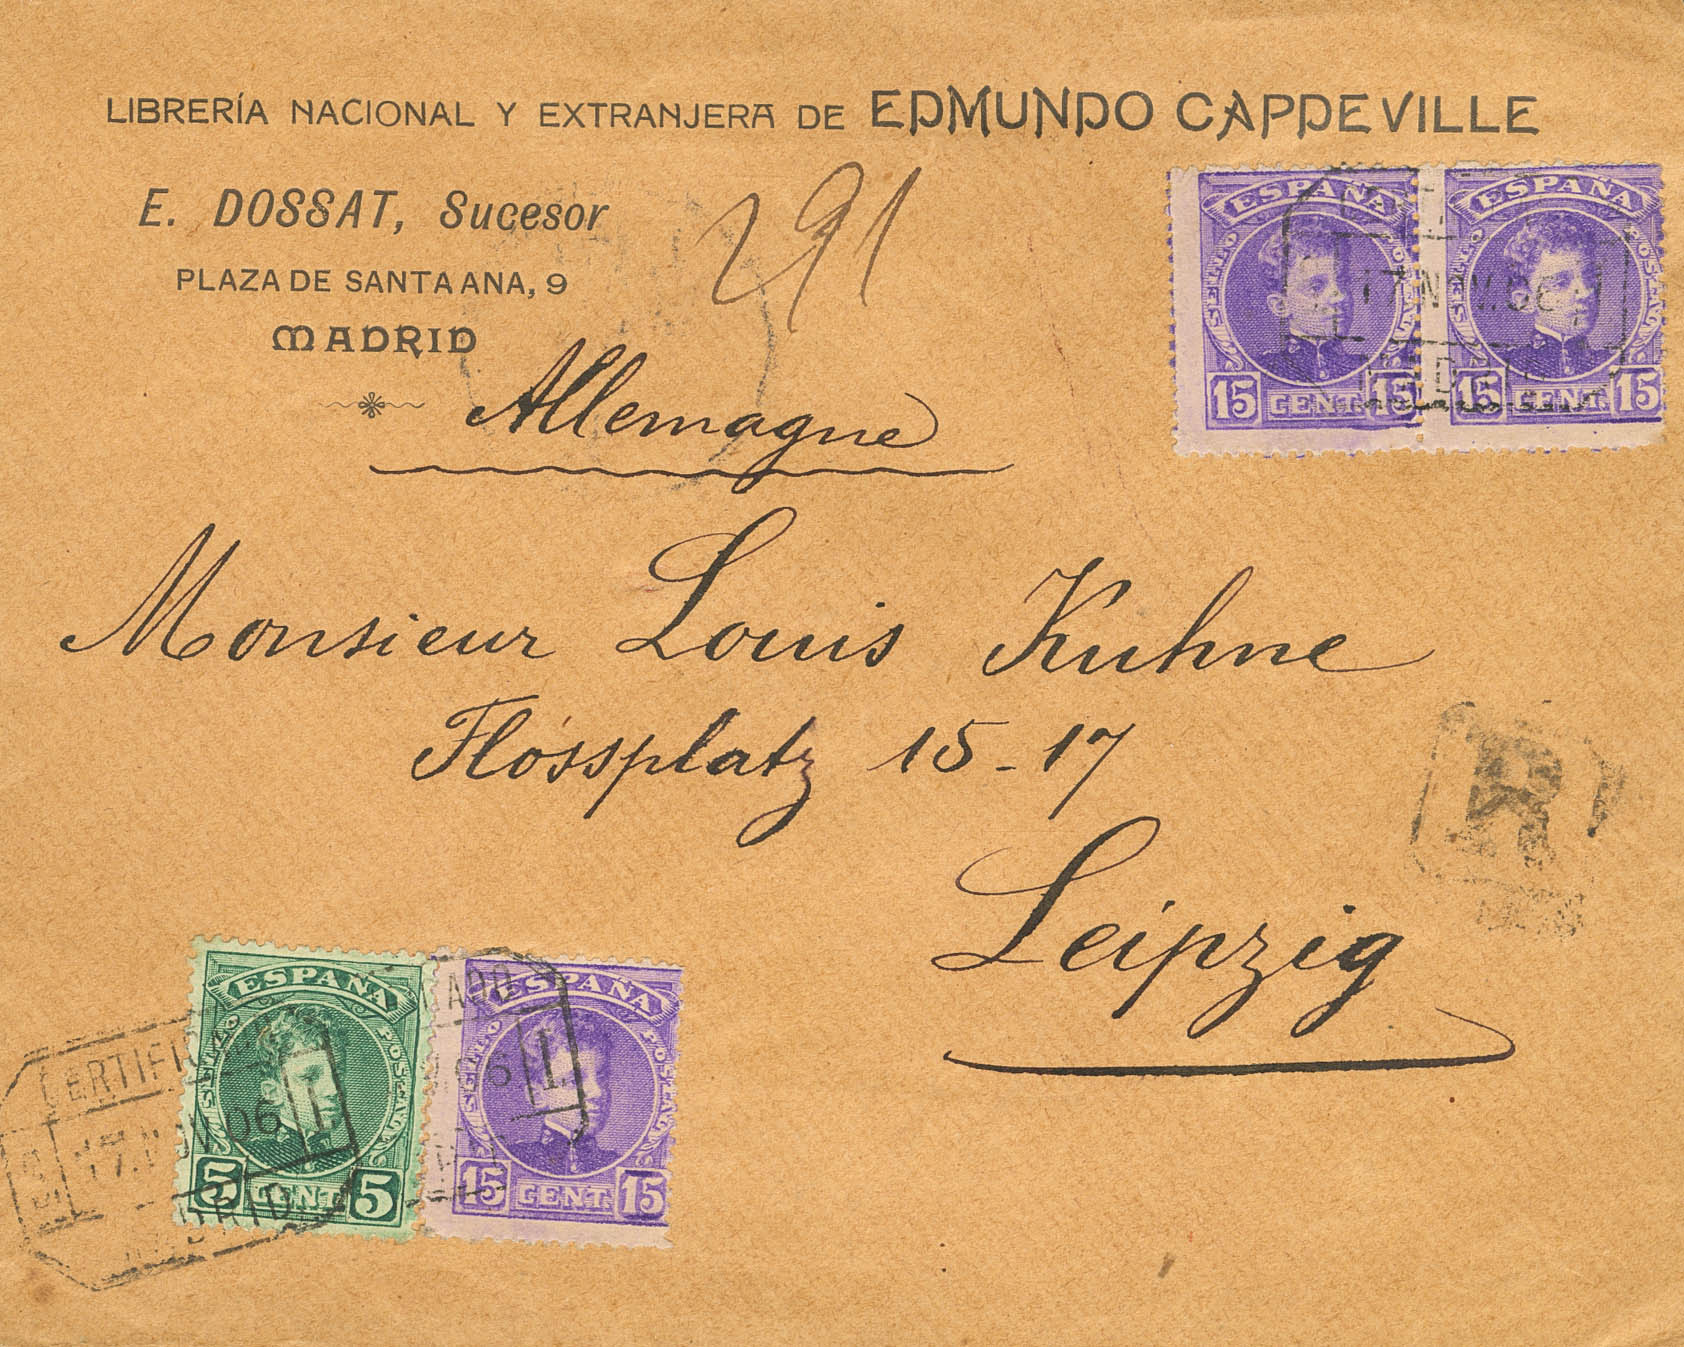 LIBRERÍA NACIONAL Y EXTRANJERA DE EDMUNDO CAPDEVILLE
E. DOSSAT, Sucesor
PLAZA DE SANTA ANA, 9
MADRID
291
ESPAÑA
SELLO POSTAL
15 CENT. 15
ESPAÑA
SELLO POSTAL
15 CENT. 15
17 NOV. 06
Allemagne
Monsieur Louis Kuhne
Flossplatz 15-17
Leipzig
R
ESPAÑA
SELLO POSTAL
5 CENT. 5
ESPAÑA
SELLO POSTAL
15 CENT. 15
CERTIFICADO
17. NOV. 06 1.
MADRID